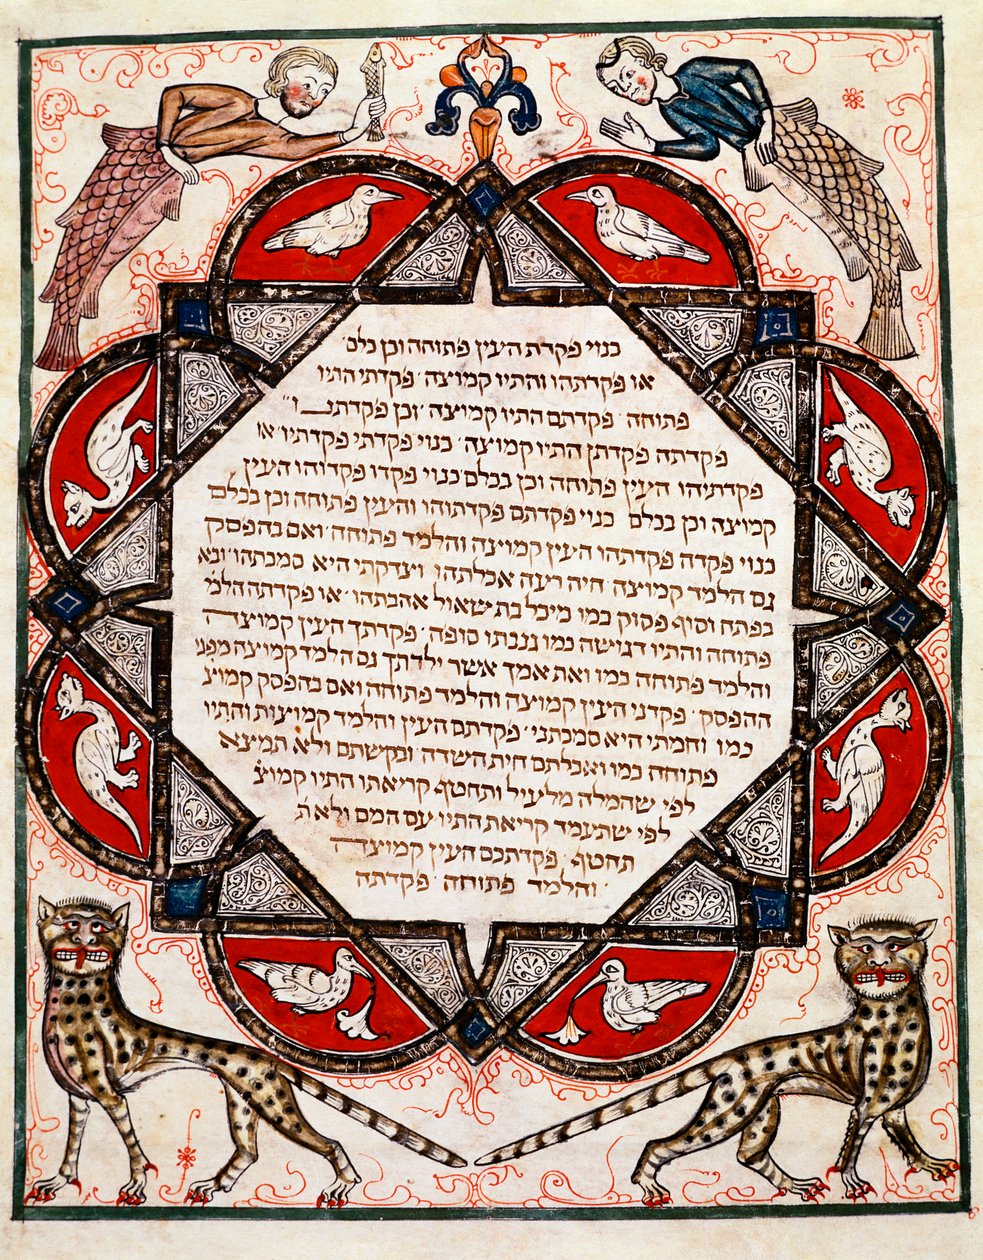 כנוי פקדת העין פתוחה וכן כלם׳
או פקדתהו והתיו קמוצה׳ פקדתי התיו
פתוחה׳ פקדתם התיו קמוצה׳ וכן פקדתנו״
פקדתה פקדתן התיו קמוצה׳ כנוי פקדתי פקדתיו׳ או
פקדתיהו העין פתוחה וכן בכלם כנוי פקדו פקדוהו העין
קמוצה וכן בכלם כנוי פקדתם פקדתוהו והעין פתוחה וכן בכלם
כנוי פקדה פקדתהו העין קמוצה והלמד פתוחה׳ ואם בהפסק
גם הלמד קמוצה׳ חיה רעה אכלתהו וצדקתי היא סמכתהו׳ ובא
בפתח וסוף פסוק כמו מיכל בת שאול אהבתהו׳ או פקדתה הלמ׳
פתוחה והתיו דגושה כמו גנבתו סופה׳ פקדתך העין קמוצה
והלמד פתוחה כמו ואת אמך אשר ילדתך גם הלמד קמוצה מפני
ההפסק׳ פקדני העין קמוצה והלמד פתוחה ואם בהפסק קמוצ׳
כמו וחמתי היא סמכתני׳ פקדתם העין והלמד קמוצות והתיו
פתוחה כמו ואכלתם חית השדה ובקשתם ולא תמצא
לפי שהמלה מלעיל ותחטף קריאתו התיו קמוצ׳
לפי שתעמד קריאת התיו עם המם ולא ת׳
תחטף׳ פקדתכם העין קמוצה
והלמד פתוחה׳ פקדתה